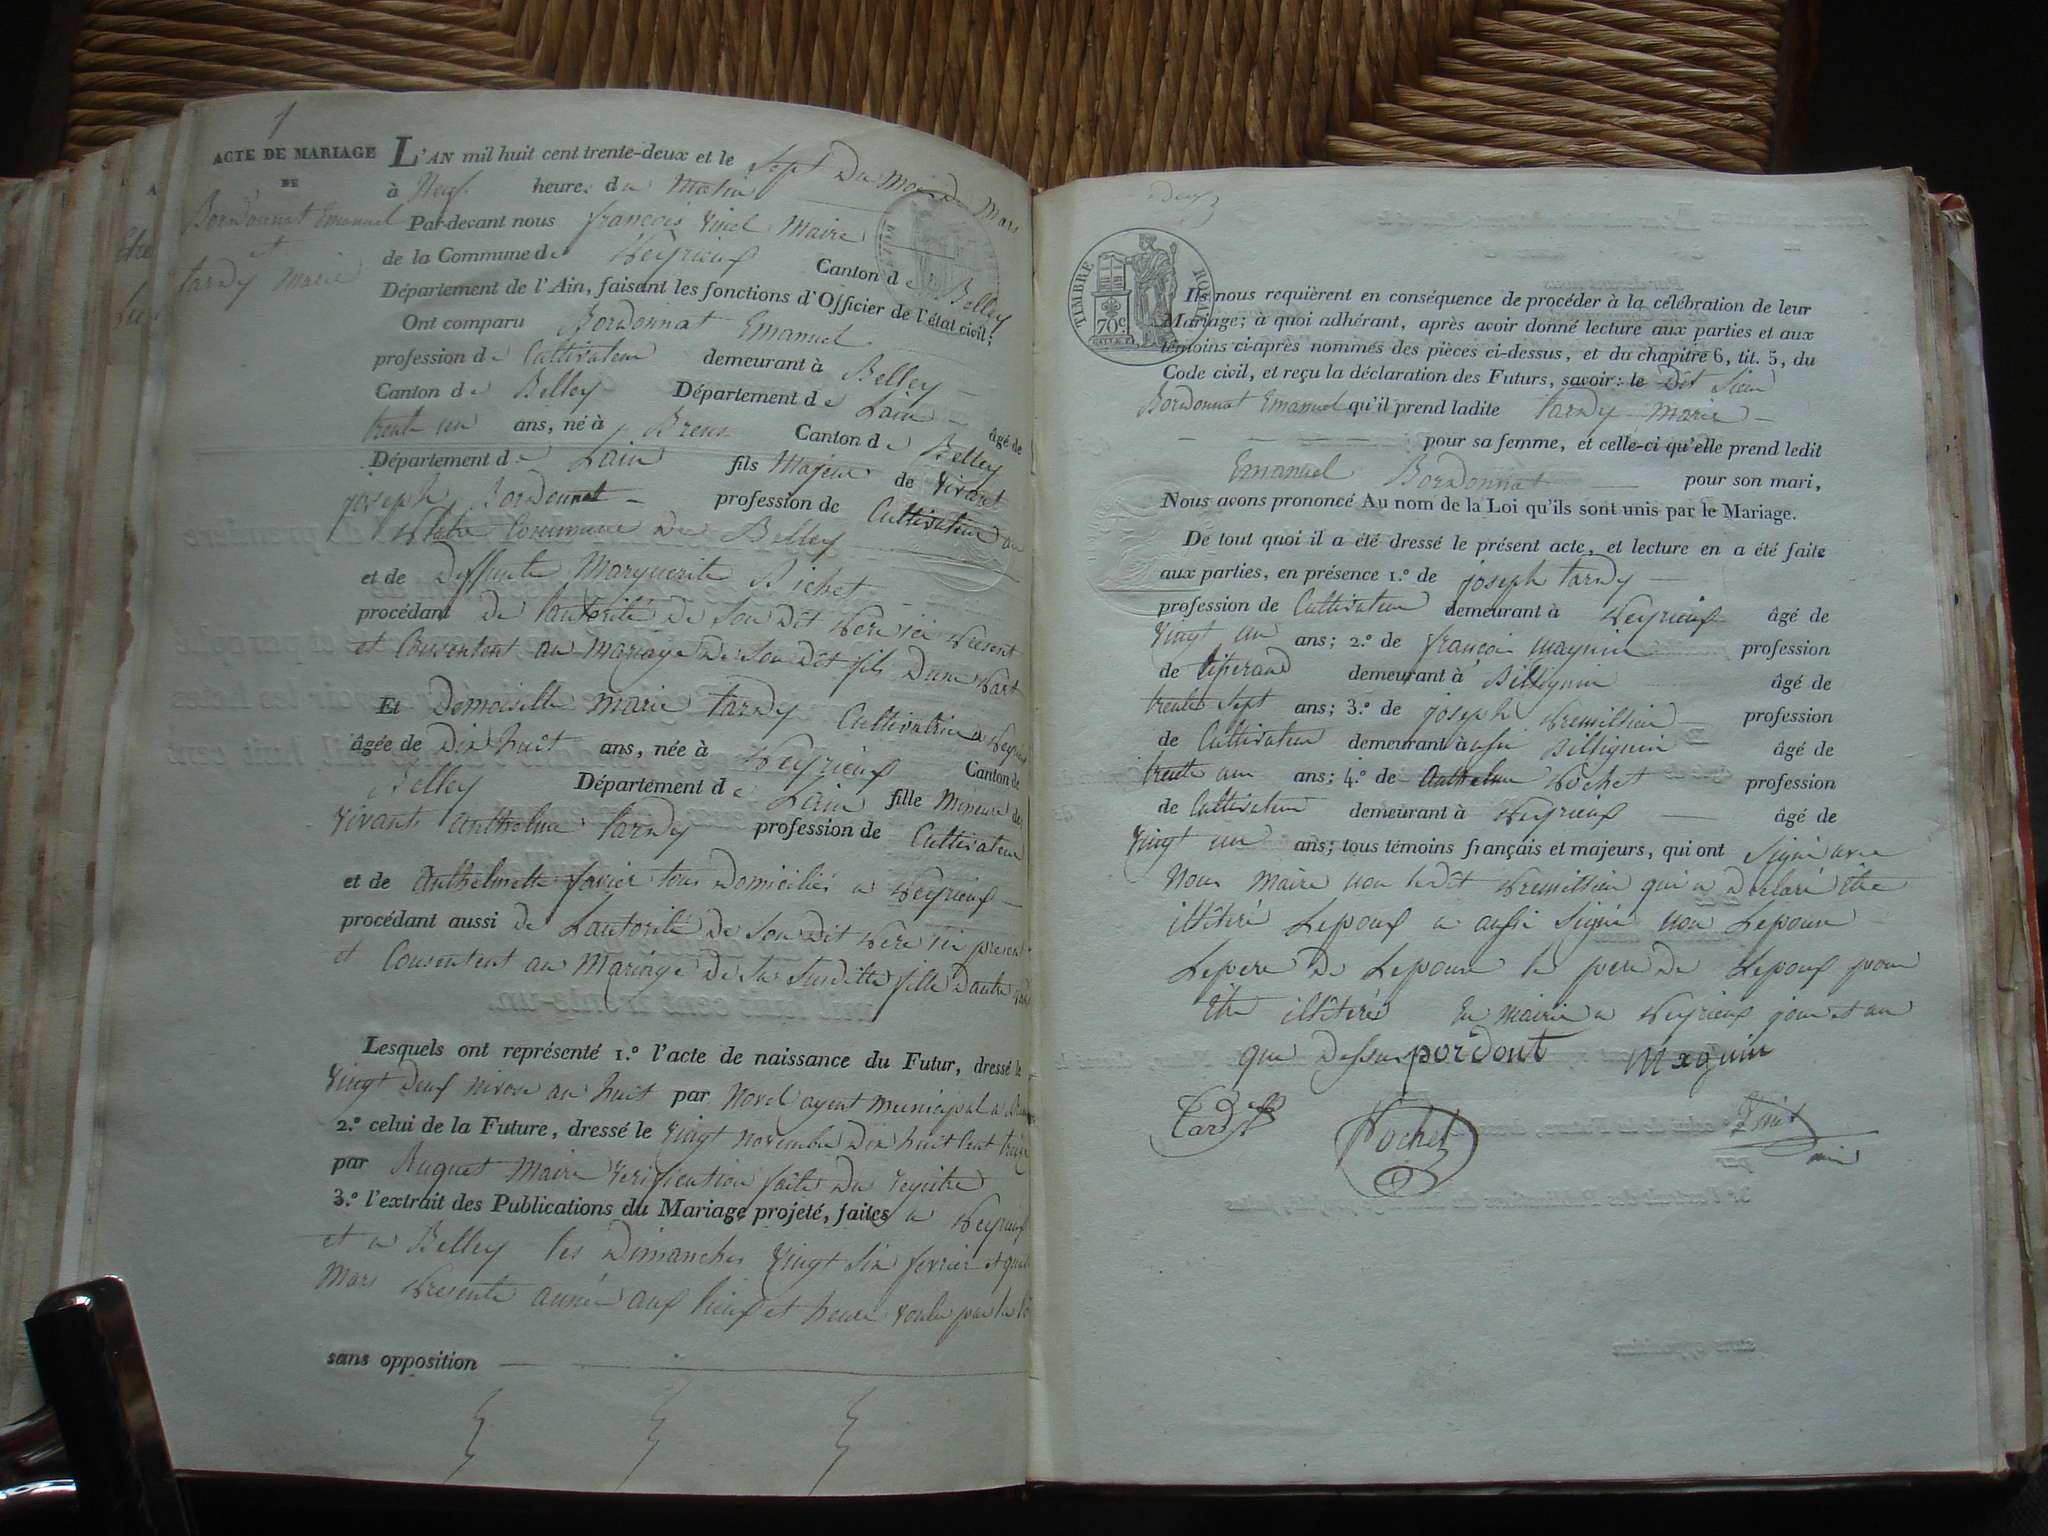 1
ACTE DE MARIAGE
DE
Bordonnat Emanuel
et
tardy Marie
L'AN mil huit cent trente-deux et le Sept Du Mois de Mars
à Neuf heures du Matin
Par-devant nous françois Vinel Maire
de la Commune de Peyrieux Canton de Belley
Département de l'Ain, faisant les fonctions d'Officier de l'état civil;
Ont comparu Bordonnat Emanuel
profession de Cultivateur demeurant à Belley
Canton de Belley Département de Lain âgé de
trente un ans, né à Brens Canton de Belley
Département de Lain fils Majeur de Vivant
joseph Bordonnat profession de Cultivateur en
Commune de Belley
et de Deffunte Marguerite Richet
procédant de Lautorité de Son Dit Pere ici Present
et Consentent au Mariage De Son Dit fils Dune Part
Et Demoiselle marie tardy Cultivatrice a Peyrieux
âgée de Dix huit ans, née à Peyrieux Canton de
Belley Département de Lain fille Mineure de
Vivants anthelme tardy profession de Cultivateur
et de anthelmette tous Domiciliés a Peyrieux
procédant aussi de Lautorité De Son Dit Pere ici present
et Consentent au Mariage De Sa Susditte fille Dautre part
Lesquels ont représenté 1.° l'acte de naissance du Futur, dressé le
Vingt Deux nivose an huit par Novel agent municipal a Brens
2.° celui de la Future, dressé le Vingt novembre Dix huit Cent treize
par Ruquet Maire Verification faite Du registre
3.° l'extrait des Publications du Mariage projeté, faites a Peyrieux
et a Belley les Dimanches Vingt Six fevrier et quatre
Mars Presente année aux lieux et heure Voulu par la loi
sans opposition
deux
TIMBRE ROYAL
70c.
Ils nous requièrent en conséquence de procéder à la célébration de leur
Mariage; à quoi adhérant, après avoir donné lecture aux parties et aux
témoins ci-après nommés des pièces ci-dessus, et du chapitre 6, tit. 5, du
Code civil, et reçu la déclaration des Futurs, savoir: le Dit Sieur
Bordonnat Emanuel qu'il prend ladite tardy Marie
pour sa femme, et celle-ci qu'elle prend ledit
Emanuel Bordonnat pour son mari,
Nous avons prononcé Au nom de la Loi qu'ils sont unis par le Mariage.
De tout quoi il a été dressé le présent acte, et lecture en a été faite
aux parties, en présence 1.° de joseph tardy
profession de Cultivateur demeurant à Peyrieux âgé de
Vingt un ans; 2.° de françois maynin profession
de tisserand demeurant à Billignin âgé de
trente Sept ans; 3.° de joseph Premillieu profession
de Cultivateur demeurant à Billignin âgé de
trente ans; 4.° de anthelme Pochet profession
de Cultivateur demeurant à Peyrieux âgé de
Vingt un ans; tous témoins français et majeurs, qui ont Signé avec
Nous Maire non ledit Premillieu qui a Déclaré être
illitéré Lepoux a aussi Signé non Lepouse
Lepere De Lepouse le pere de Lepoux pour
être illitérés En mairie a Peyrieux jour et an
que Dessus pordont Maguin
tardy Pochet Vinel
maire